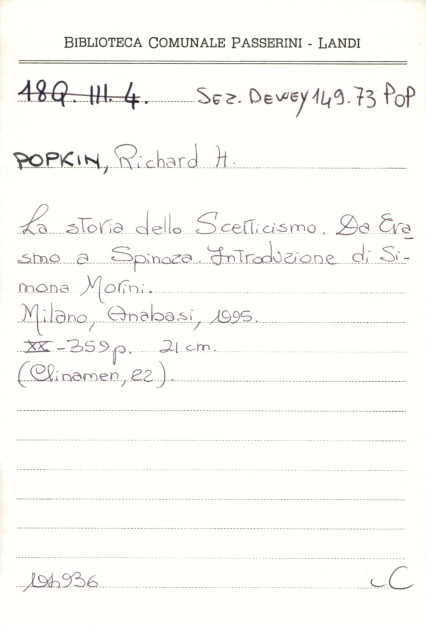 BIBLIOTECA COMUNALE PASSERINI - LANDI
18Q. III. 4. SEZ. DEWEY 149.73 POP
POPKIN, Richard H.
La storia dello Scetticismo. Da Era
smo a Spinoza. Introduzione di Si-
mona Morini.
Milano, Anabasi, 1995.
XX-359 p. 21 cm.
(Clinamen, 22).
C